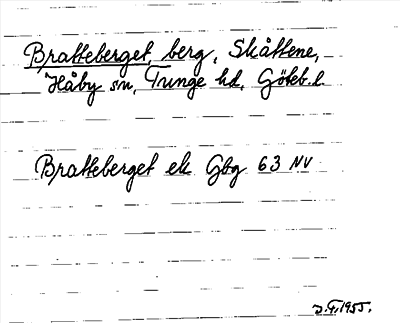 Bratteberget, berg, Skåttene,
Håby sn, Tunge hd, Göteb.l.
Bratteberget ek Gbg 63 NV
J.F. 1955.